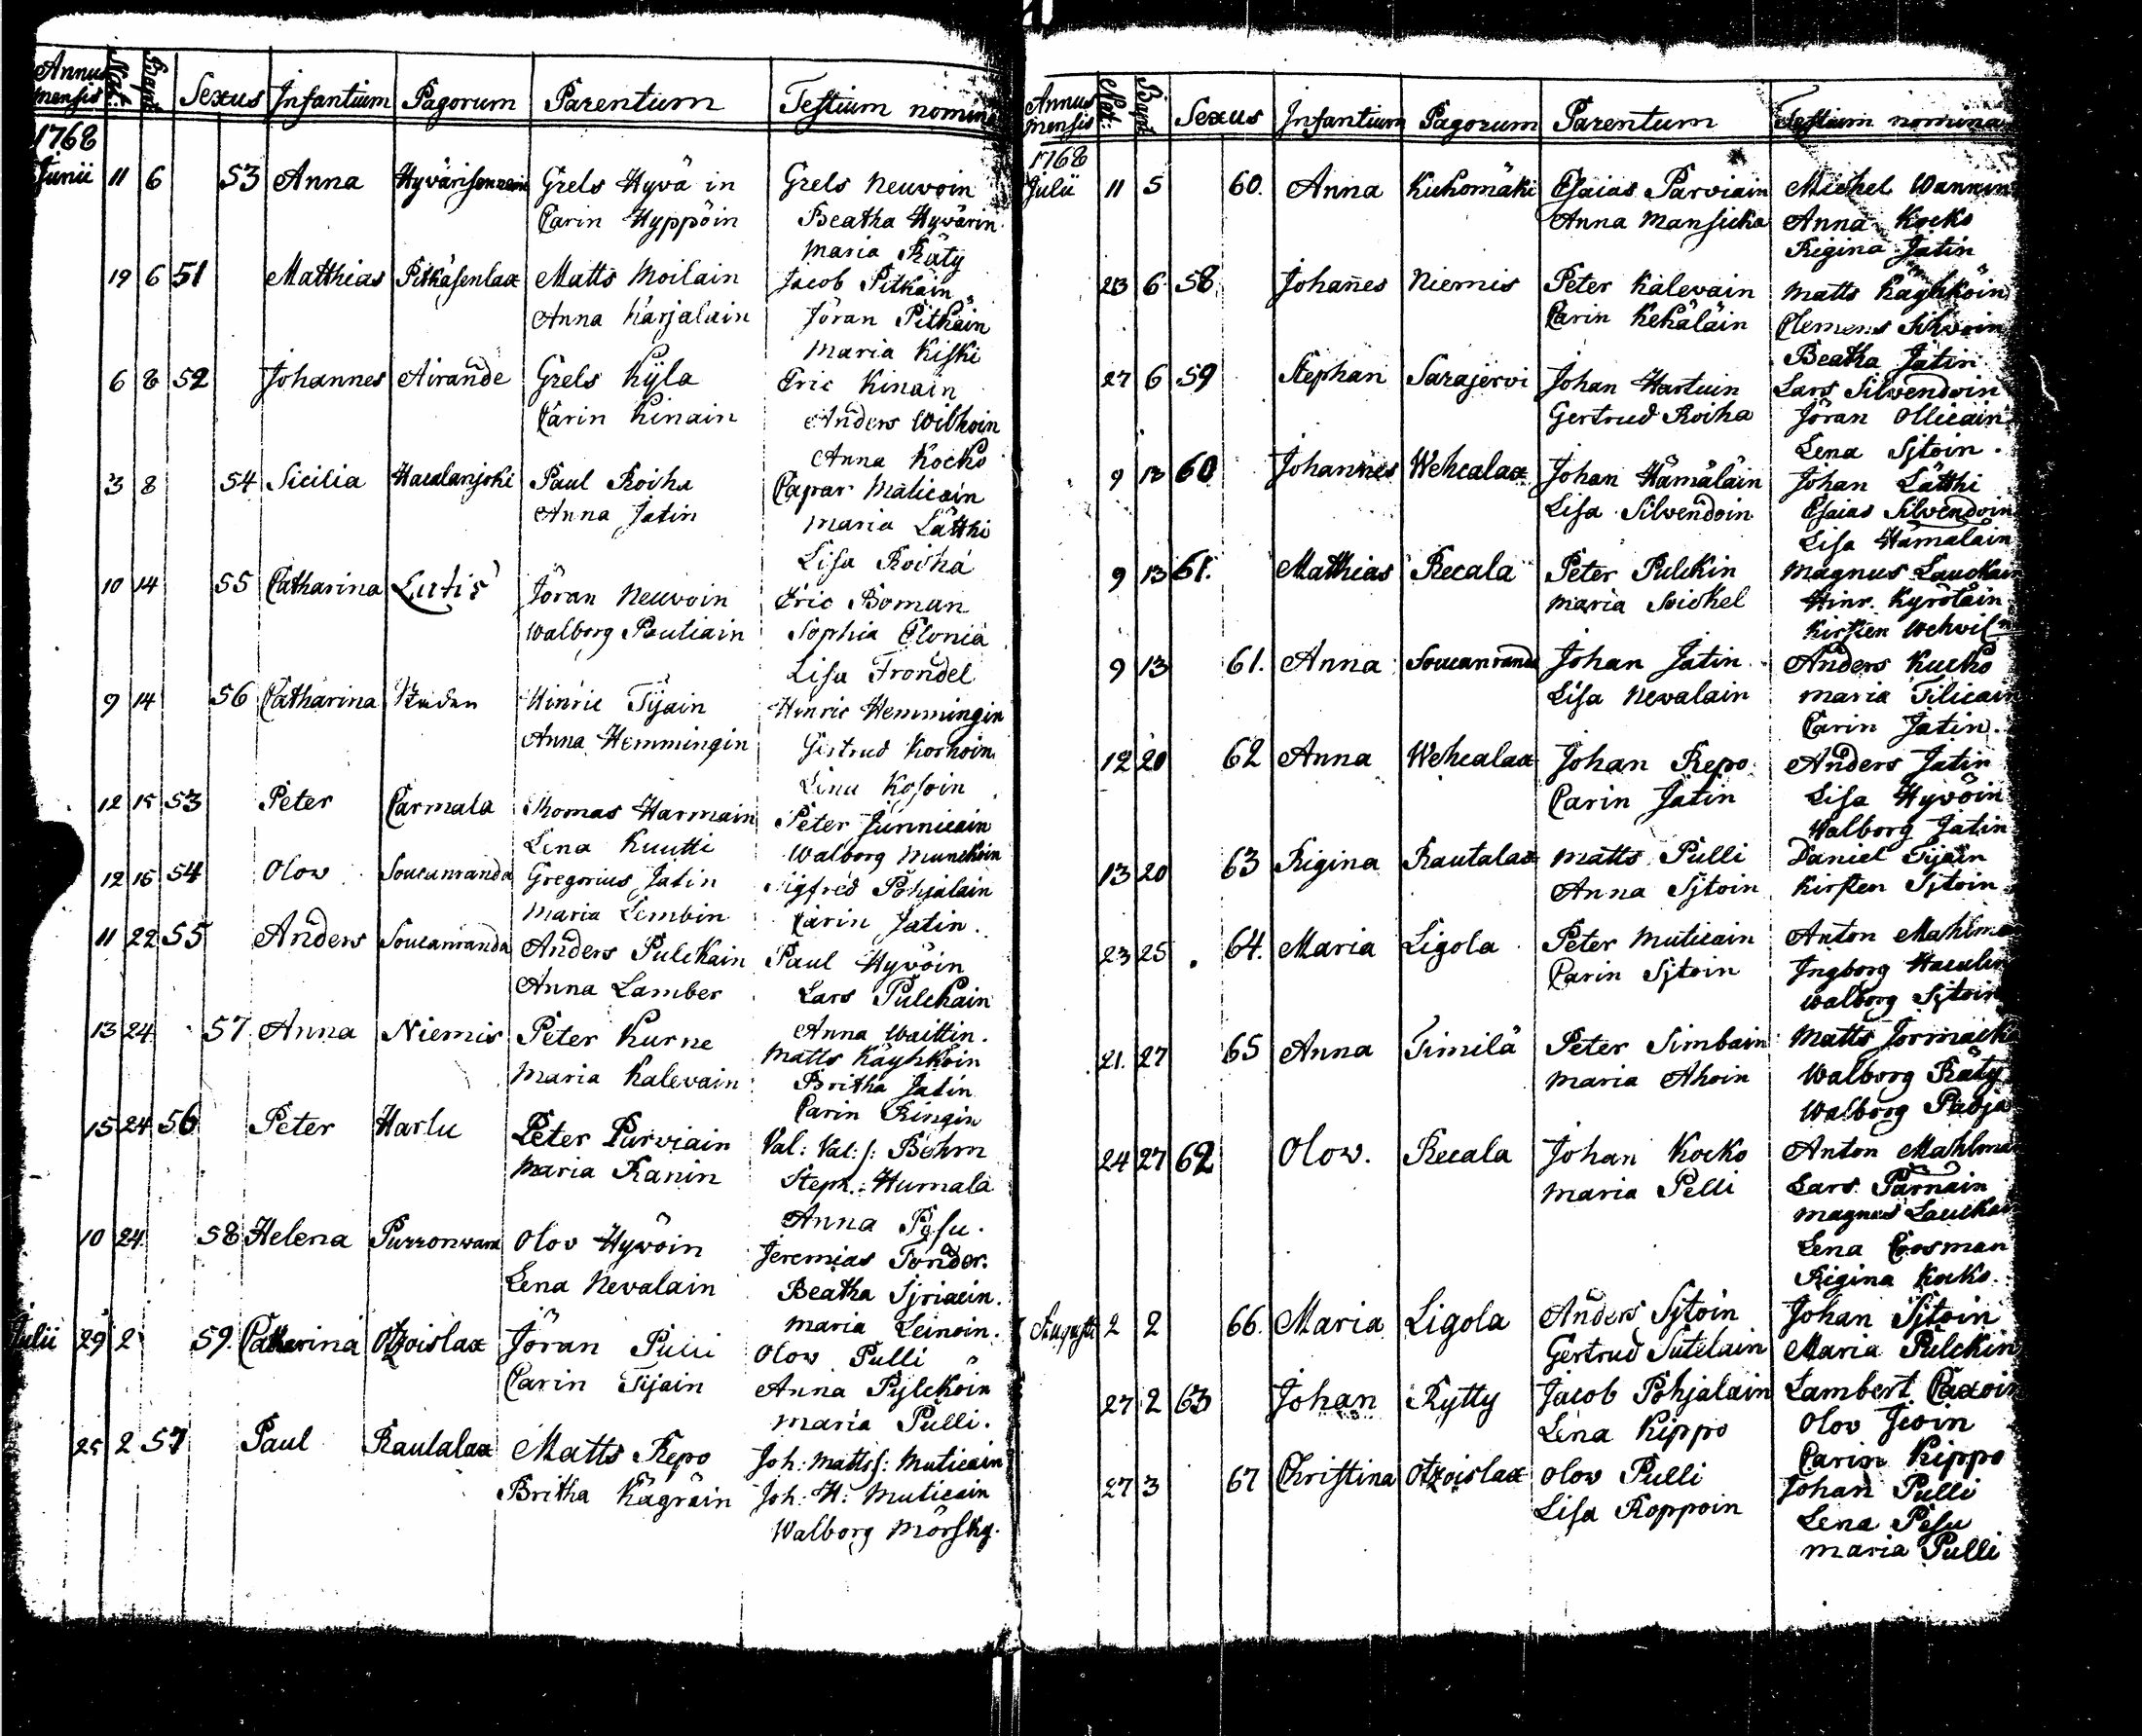 Annus mensis Nat: Bapt Sexus Infantium Pagorum Parentum Testium nomina
1768
Junii 11 6 53 Anna Hyvärisenniem Grels Hyvä in Grels Neuvoin
Carin Hyppöin Beatha Hyvärin
Maria Räty
19 6 51 Matthias Pitkäsenlax Matts Moilain Jacob Pitkäin
Anna Karjalain Jöran Pitkäin
Maria Kiski
6 8 52 Johannes Airande Grels Kylä Eric Kinain
Carin Kinain Anders Wilhoin
Anna Kocko
3 8 54 Sicilia Haualanjoki Paul Roiha Capar Maticain
Anna Jatin Maria Lätthi
Lisa Roiha
10 14 55 Catharina Jöran Neuvoin Eric Boman
Walborg Poutiain Sophia Clonia
Lisa Frondel
9 14 56 Catharina Hinric Tijain Hinric Hemmingin
Anna Hemmingin Gertrud Korhoin
Lena Kosoin
12 15 53 Peter Carmala Thomas Harmain Peter Junnicain
Lena Kuutti Walborg Munckoin
12 15 54 Olow Soucanranda Gregorius Jatin Sigfred Pohjalain
Maria Lembin Carin Jatin.
11 22 55 Anders Soucanranda Anders Pulckain Paul Hyvöin
Anna Lamber Lars Pulckain
Anna Waittin.
13 24 57 Anna Niemis Peter Kurne Matts Käyhköin
Maria Kalevain Britha Jatin
Carin Ringin
15 24 56 Peter Harlu Peter Parviain Val: Val:s: Bohm
Maria Ranin Steph: Humala
Anna Pesu.
10 24 58 Helena Purronvara Olov Hyvöin Jeremias Fonder.
Lena Nevalain Beatha Sjriaein.
Maria Leinoin.
Julii 29 2 59. Catharina Otzoislax Jöran Pulli Olow Pulli
Carin Tijain Anna Pylcköin
Maria Pulli.
25 2 57 Paul Rautalax Matts Repo Joh: Mattss: Muticain
Britha Kägräin Joh: H: Muticain
Walborg Mörsky.
Annus mensis Nat: Bapt Sexus Infantium Pagorum Parentum Testium nomina
1768
Julii 11 5 60. Anna Kuhomäki Esaias Parviain Michel Wannin
Anna Mansicka Anna Kocko
Rigina Jatin
23 6 58 Johañes Niemis Peter Kalevain Matts Käyhköin
Carin Kekäläin Clemens Sihvoin
Beatha Jatin
27 6 59 Stephan Sarajervi Johan Hartuin Lars Silvendoin
Gertrud Roiha Jöran Ollicain
Lena Sjtoin.
9 13 60 Johannes Wehcalax Johan Hämäläin Johan Lätthi
Lisa Silvendoin Esaias Silvendoin
Lisa Hämäläin
9 13 61. Matthias Recala Peter Pulckin Magnus Lauckain
Maria Hinr. Kyröläin
Kirsten
9 13 61. Anna Soucanranda Johan Jatin Anders Kucko
Lisa Nevalain Maria Tilicain
Carin Jatin.
12 20 62 Anna Wehcalax Johan Repo Anders Jatin
Carin Jatin Lisa Hyvöin
Walborg Jatin
13 20 63 Rigina Rautalax Matts Pulli Daniel Tijain
Anna Sjtoin Kirsten Sjtoin
23 25 64. Maria Ligola Peter Muticain Anton Mahlman
Carin Sjtoin Ingborg
Walborg Sjtoin
21. 27 65 Anna Timilä Peter Simbain Matts
Maria Ahoin Walborg Räty
Walborg
24 27 62 Olow. Recala Johan Kocko Anton Mahlman
Maria Pelli Lars Pärnäin
Magnus Lauckain
Lena Crosman
Rigina Kocko.
Augusti 2 2 66. Maria Ligola Anders Sjtoin Johan Sjtoin
Gertrud Sutelain Maria Pulckin
27 2 63 Johan Rytty Jacob Pohjalain Lambert Paxoin
Lena Kippo Olov Jcoin
Carin Kippo
27 3 67 Christina Otzoislax Olow Pulli Johan Pulli
Lisa Roppoin Lena Pesu
Maria Pulli